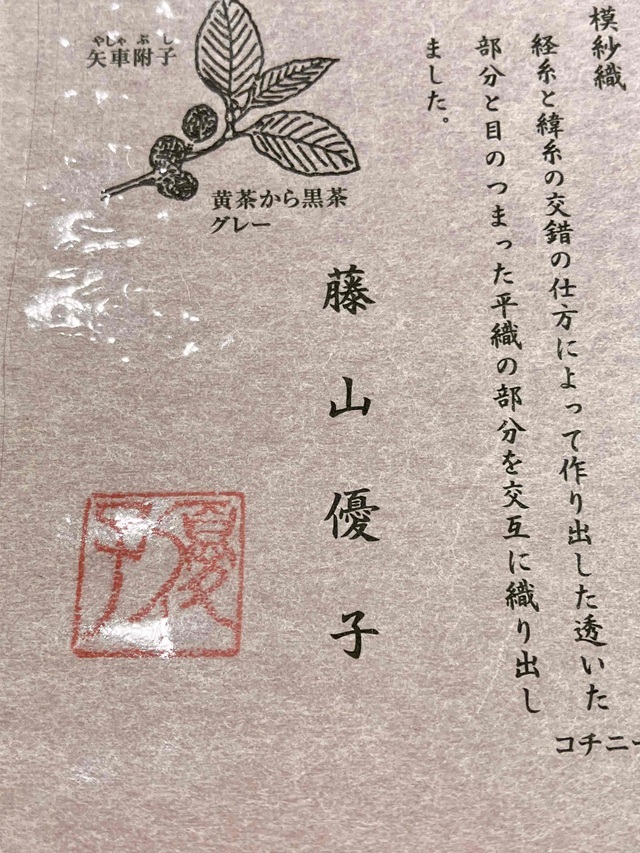 模紗織
経糸と緯糸の交錯の仕方によって作り出した透いた
部分と目のつまった平織の部分を交互に織り出し
ました。
やしゃぶし
矢車附子
黄茶から黒茶
グレー
藤山優子
優子
コチニー